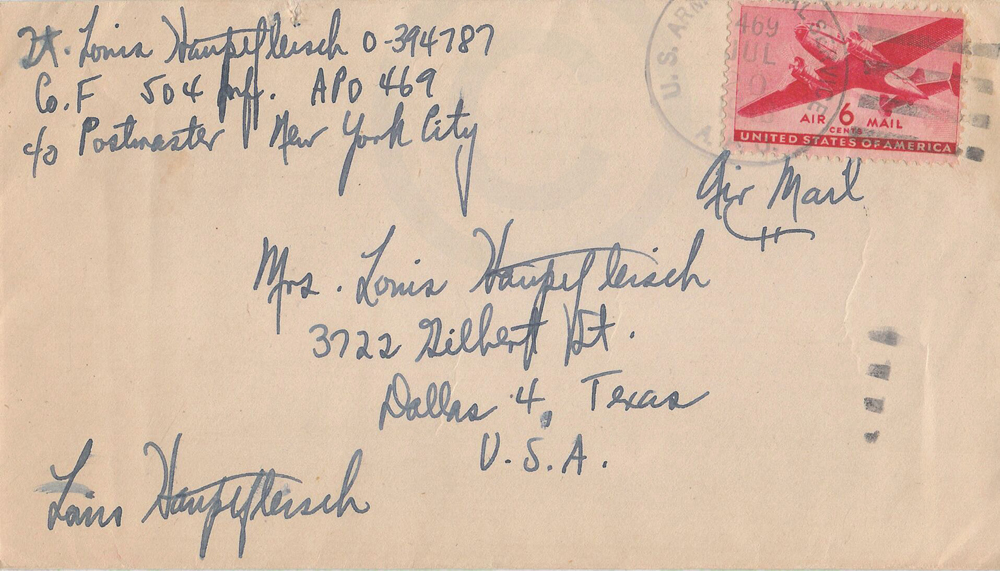 Lt. Louis Hauptfleisch O-394787
Co. F 504 Inf. APO 469
c/o Postmaster New York City
U.S. ARMY
469
JUL
AIR 6 MAIL
CENTS
UNITED STATES OF AMERICA
Air Mail
Mrs. Louis Hauptfleisch
3722 Gilbert St.
Dallas 4, Texas
U.S.A.
Louis Hauptfleisch